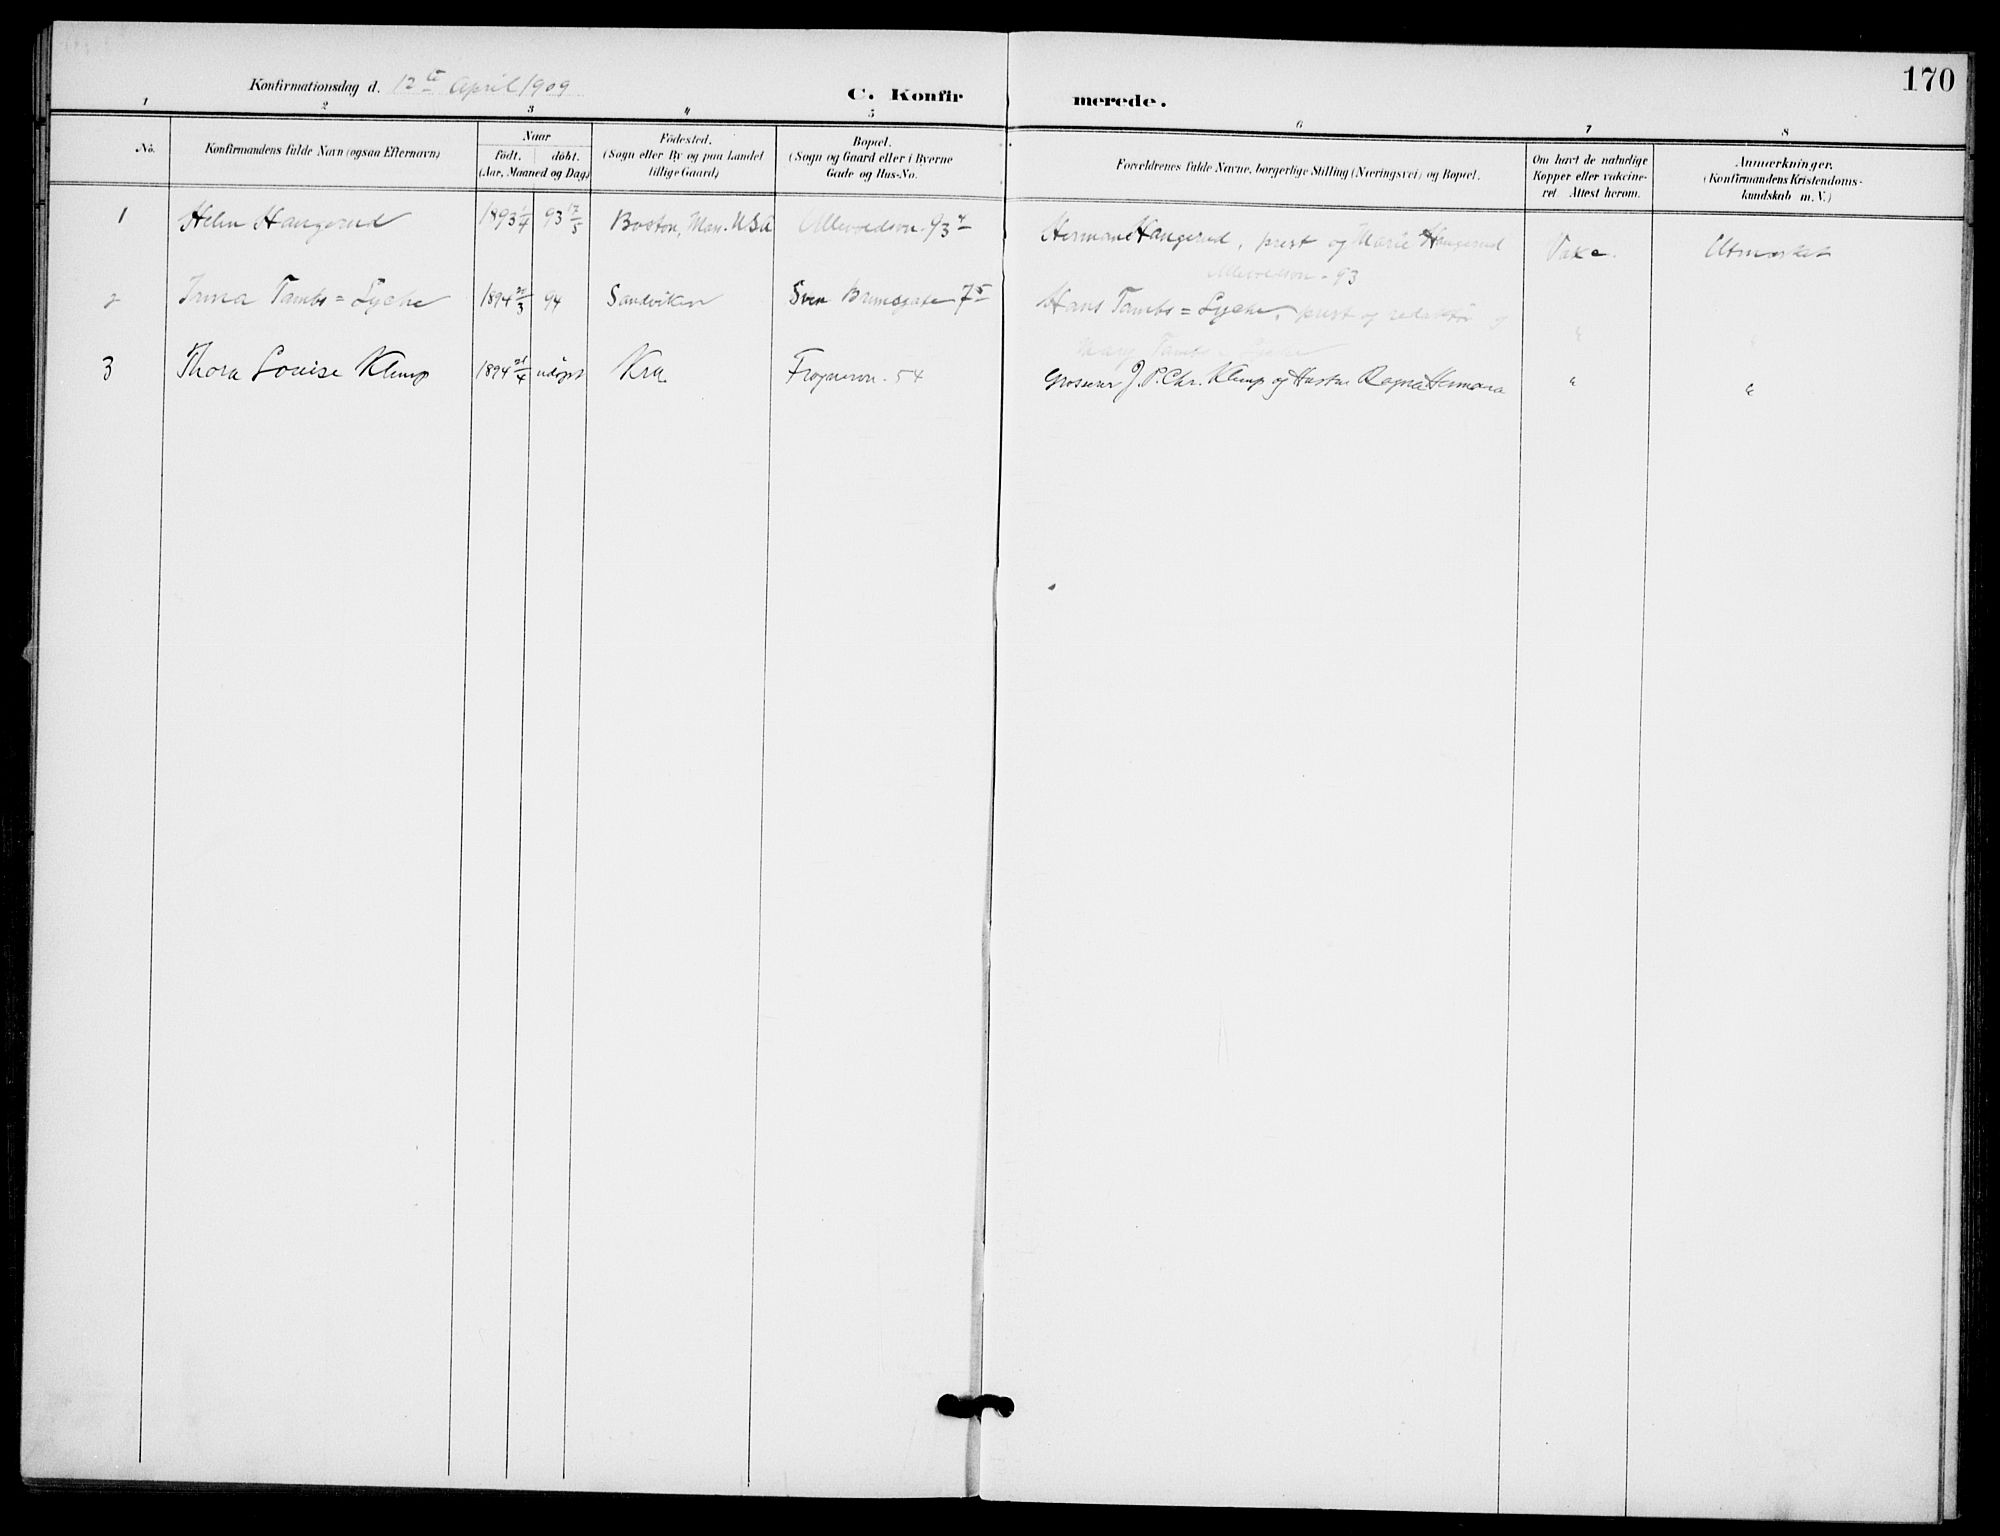 170
Konfirmationsdag d. 12te April 1909
C. Konfirmerede.
1 2 3 4 5 6 7 8
No.
Konfirmandens fulde Navn (ogsaa Efternavn)
Naar
født. døbt.
(Aar, Maaned og Dag)
Fødested.
(Sogn eller By og paa Landet
tillige Gaard)
Bopæl.
(Sogn og Gaard eller i Byerne
Gade og Hus-No.
Forældrenes fulde Navne, borgerlige Stilling (Næringsvei) og Bopæl.
Om havt de naturlige
Kopper eller vakcine-
ret Attest herom.
Anmærkninger.
(Konfirmandens Kristendoms-
kundskab m. V.)
1 Helen Haugerud 1893 1/4 93 17/5 Boston, Mass. USA Ullevoldsvn. 93 4 Herman Haugerud, prest og Marie Haugerud Vakc. Utmerket
Ullevoldsvn. 93
2 Tambs=Lyche 1894 3 94 Sandviken Sven Brunsgate 7 5 Hans Tambs=Lyche, prest og redaktør og " "
Mary Tambs=Lyche
3 Thora Louise Klemp 1894 21/4 udøpt Kra. Frognervn. 54 Grosserer J. P. Chr. Klemp og Hustru Ragna Hermana " "